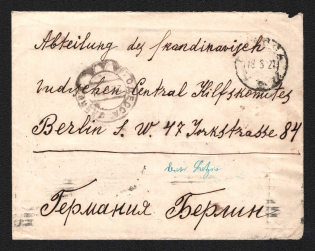 Abteilung des Skandinavisch
Jüdischen Central Hilfskomitees
Berlin S. W 47 Yorkstrasse 84
Германия Берлин
ОДЕССА
18 5 2